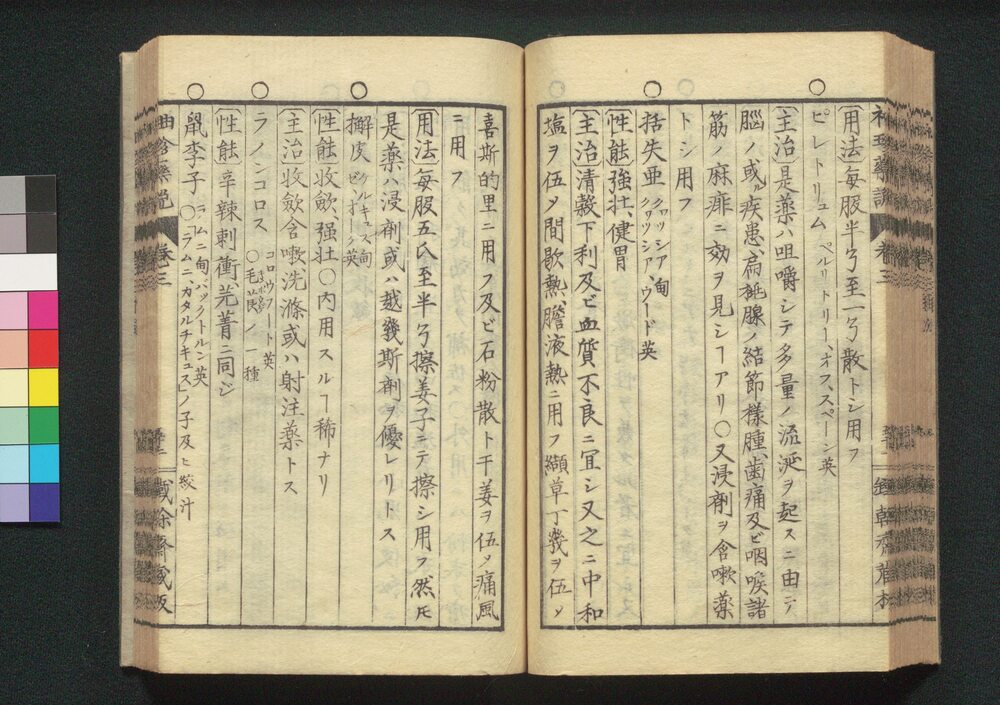 〔用法〕毎服半弓至一弓散トシ用フ
○ピレトリュム ペルリトリー、オフ、スペーン英
〔主治〕是薬ハ咀嚼シテ多量ノ流涎ヲ起スニ由テ
脳ノ或ル疾患、扁桃腺ノ結節様腫、歯痛及ビ咽喉諸
筋ノ麻痺ニ効ヲ見シヿアリ○又浸剤ヲ含嗽薬
トシ用フ
○括失亜 クワッシア甸 クワッシア、ウード英
〔性能〕強壮、健胃
〔主治〕清穀下利及ビ血質不良ニ宜シ又之ニ中和
塩ヲ伍〆間歇熱、胆液熱ニ用フ纈草丁幾ヲ伍〆
喜斯的里ニ用フ及ビ石粉散ト干姜ヲ伍〆痛風
ニ用フ
〔用法〕毎服五氏至半弓擦姜子ニテ擦シ用フ然𪜈
是薬ハ浸剤或ハ越幾斯剤ヲ優レリトス
○檞皮 クルキュス甸 ビオーク英
〔性能〕收歛、强壮○内用スルヿ稀ナリ
〔主治〕收歛含嗽洗滌或ハ射注薬トス
○ラノンコロス コロウフート英 ○毛茛ノ一種
〔性能〕辛辣刺衝芫菁ニ同ジ
○鼠李子 ラムニ甸バックトルン英 ○「ラムニ、カタルチキュス」ノ子及ヒ絞汁
巻三
巻三